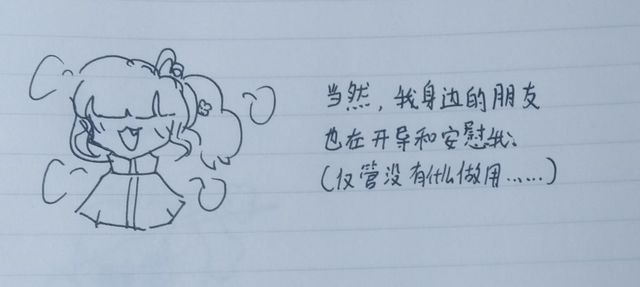 当然，我身边的朋友
也在开导和安慰我。
(仅管没有什么做用……)